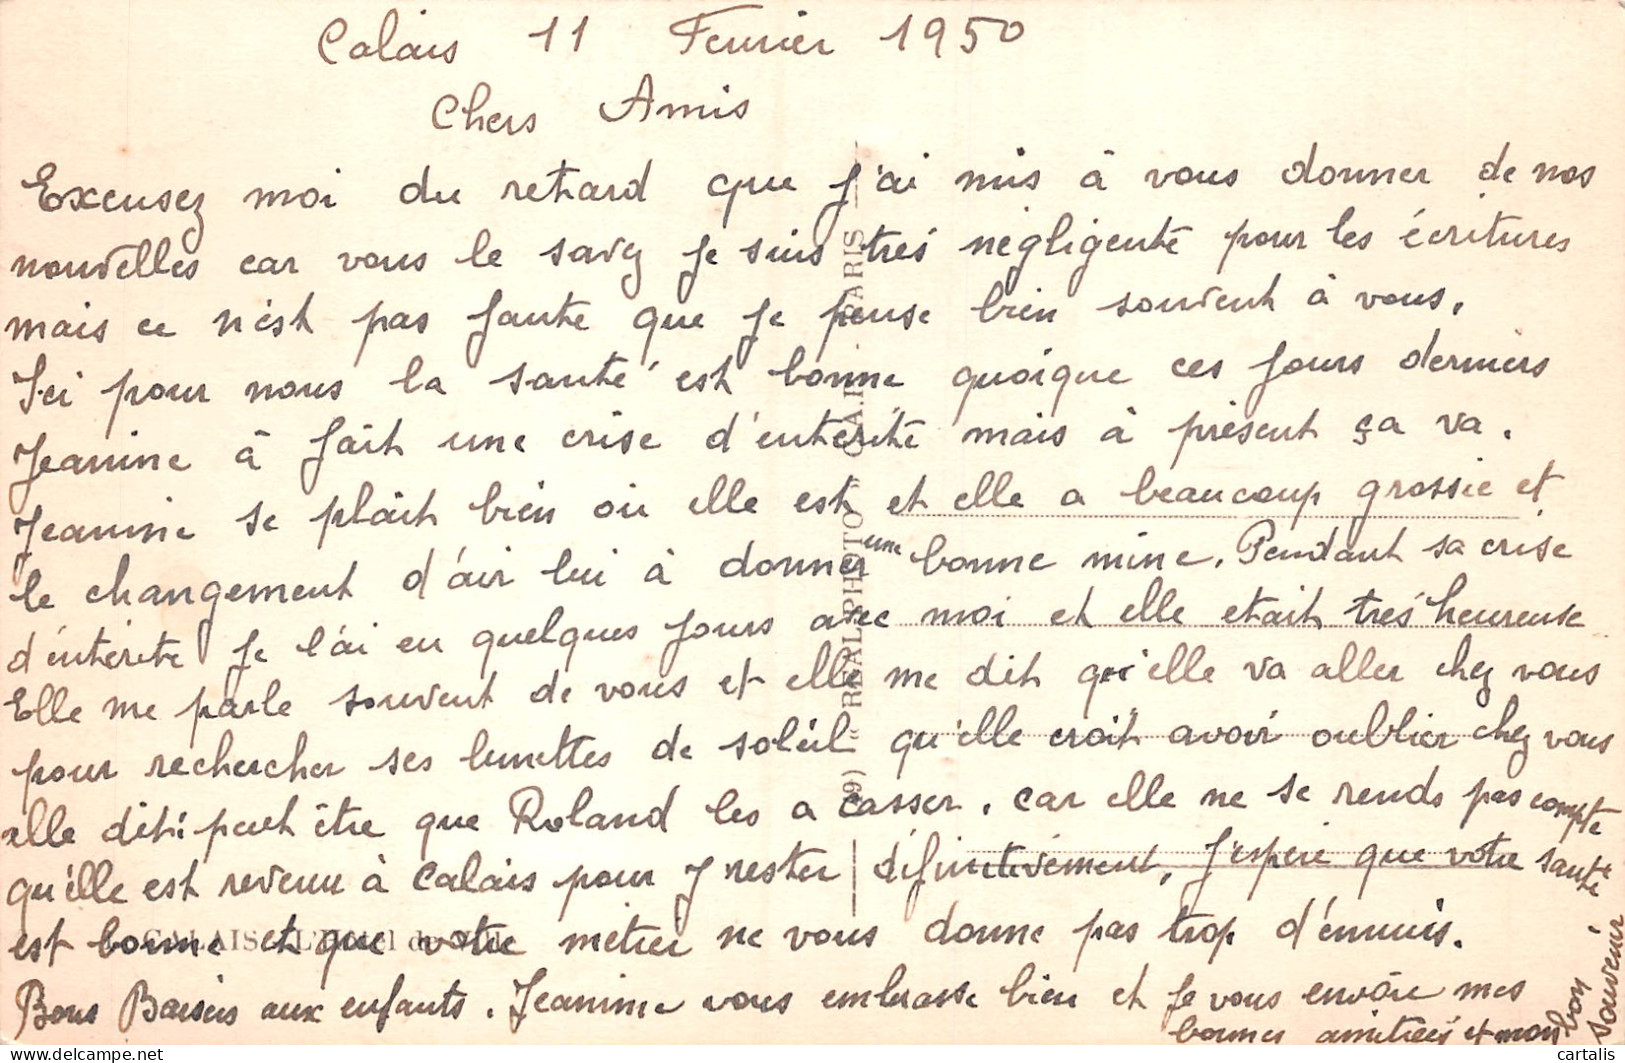 Calais 11 Fevrier 1950
Chers Amis
Excusez moi du retard que j'ai mis à vous donner de nos
nouvelles car vous le savez je suis très négligente pour les écritures
mais ce n'est pas faute que je pense bien souvent à vous.
Ici pour nous la santé est bonne quoique ces jours derniers
Jeanine à fait une crise d'entérite mais à présent ça va.
Jeanine se plait bien où elle est et elle a beaucoup grossie et
le changement d'air lui à donner une bonne mine. Pendant sa crise
d'entérite je l'ai eu quelques jours avec moi et elle etait très heureuse
Elle me parle souvent de vous et elle me dit qu'elle va aller chez vous
pour rechercher ses lunettes de soleil qu'elle croit avoir oublier chez vous
elle dit: peut être que Roland les a casser. car elle ne se rends pas compte
qu'elle est revenu à Calais pour y rester définitivement. J'espère que votre santé
est bonne et que votre métier ne vous donne pas trop d'ennuis.
Bons Baisers aux enfants. Jeanine vous embrasse bien et je vous envoie mes
bonnes amitiées et mon
bon souvenir
99) " REAL-PHOTO " C.A.P. - PARIS
CALAIS - L'Hôtel de Ville
delcampe.net
cartalis